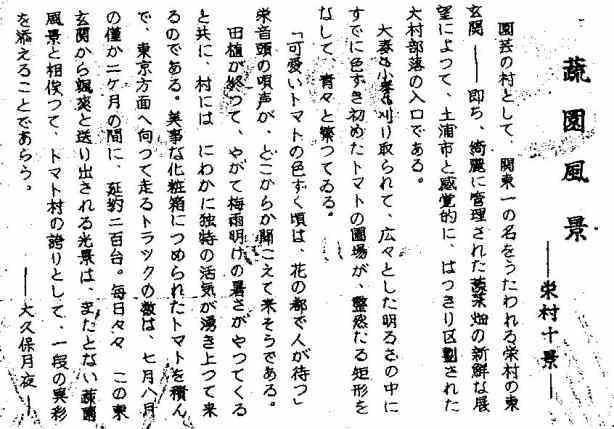 蔬園風景
――栄村十景――
園芸の村として、関東一の名をうたわれる栄村の東
玄関――即ち、綺麗に管理された蔬菜畑の新鮮な展
望によつて、土浦市と感覚的に、はつきり区劃された
大村部落の入口である。
大麦も小麦も刈り取られて、広々とした明るさの中に
すでに色ずき初めたトマトの圃場が、整然たる矩形を
なして、青々と繁つてゐる。
「可愛いトマトの色ずく頃は、花の都で人が待つ」
栄音頭の唄声が、どこからか聞こえて来そうである。
田植が終つて、やがて梅雨明けの暑さがやつてくる
と共に、村には、にわかに独特の活気が湧き上つて来
るのである。美事な化粧箱につめられたトマトを積ん
で、東京方面へ向つて走るトラックの数は、七月八月
の僅か二ケ月の間に、延約二百台。毎日々々、この東
玄関から颯爽と送り出される光景は、またとない蔬園
風景と相俟つて、トマト村の誇りとして、一段の異彩
を添えることであらう。
――大久保月夜――